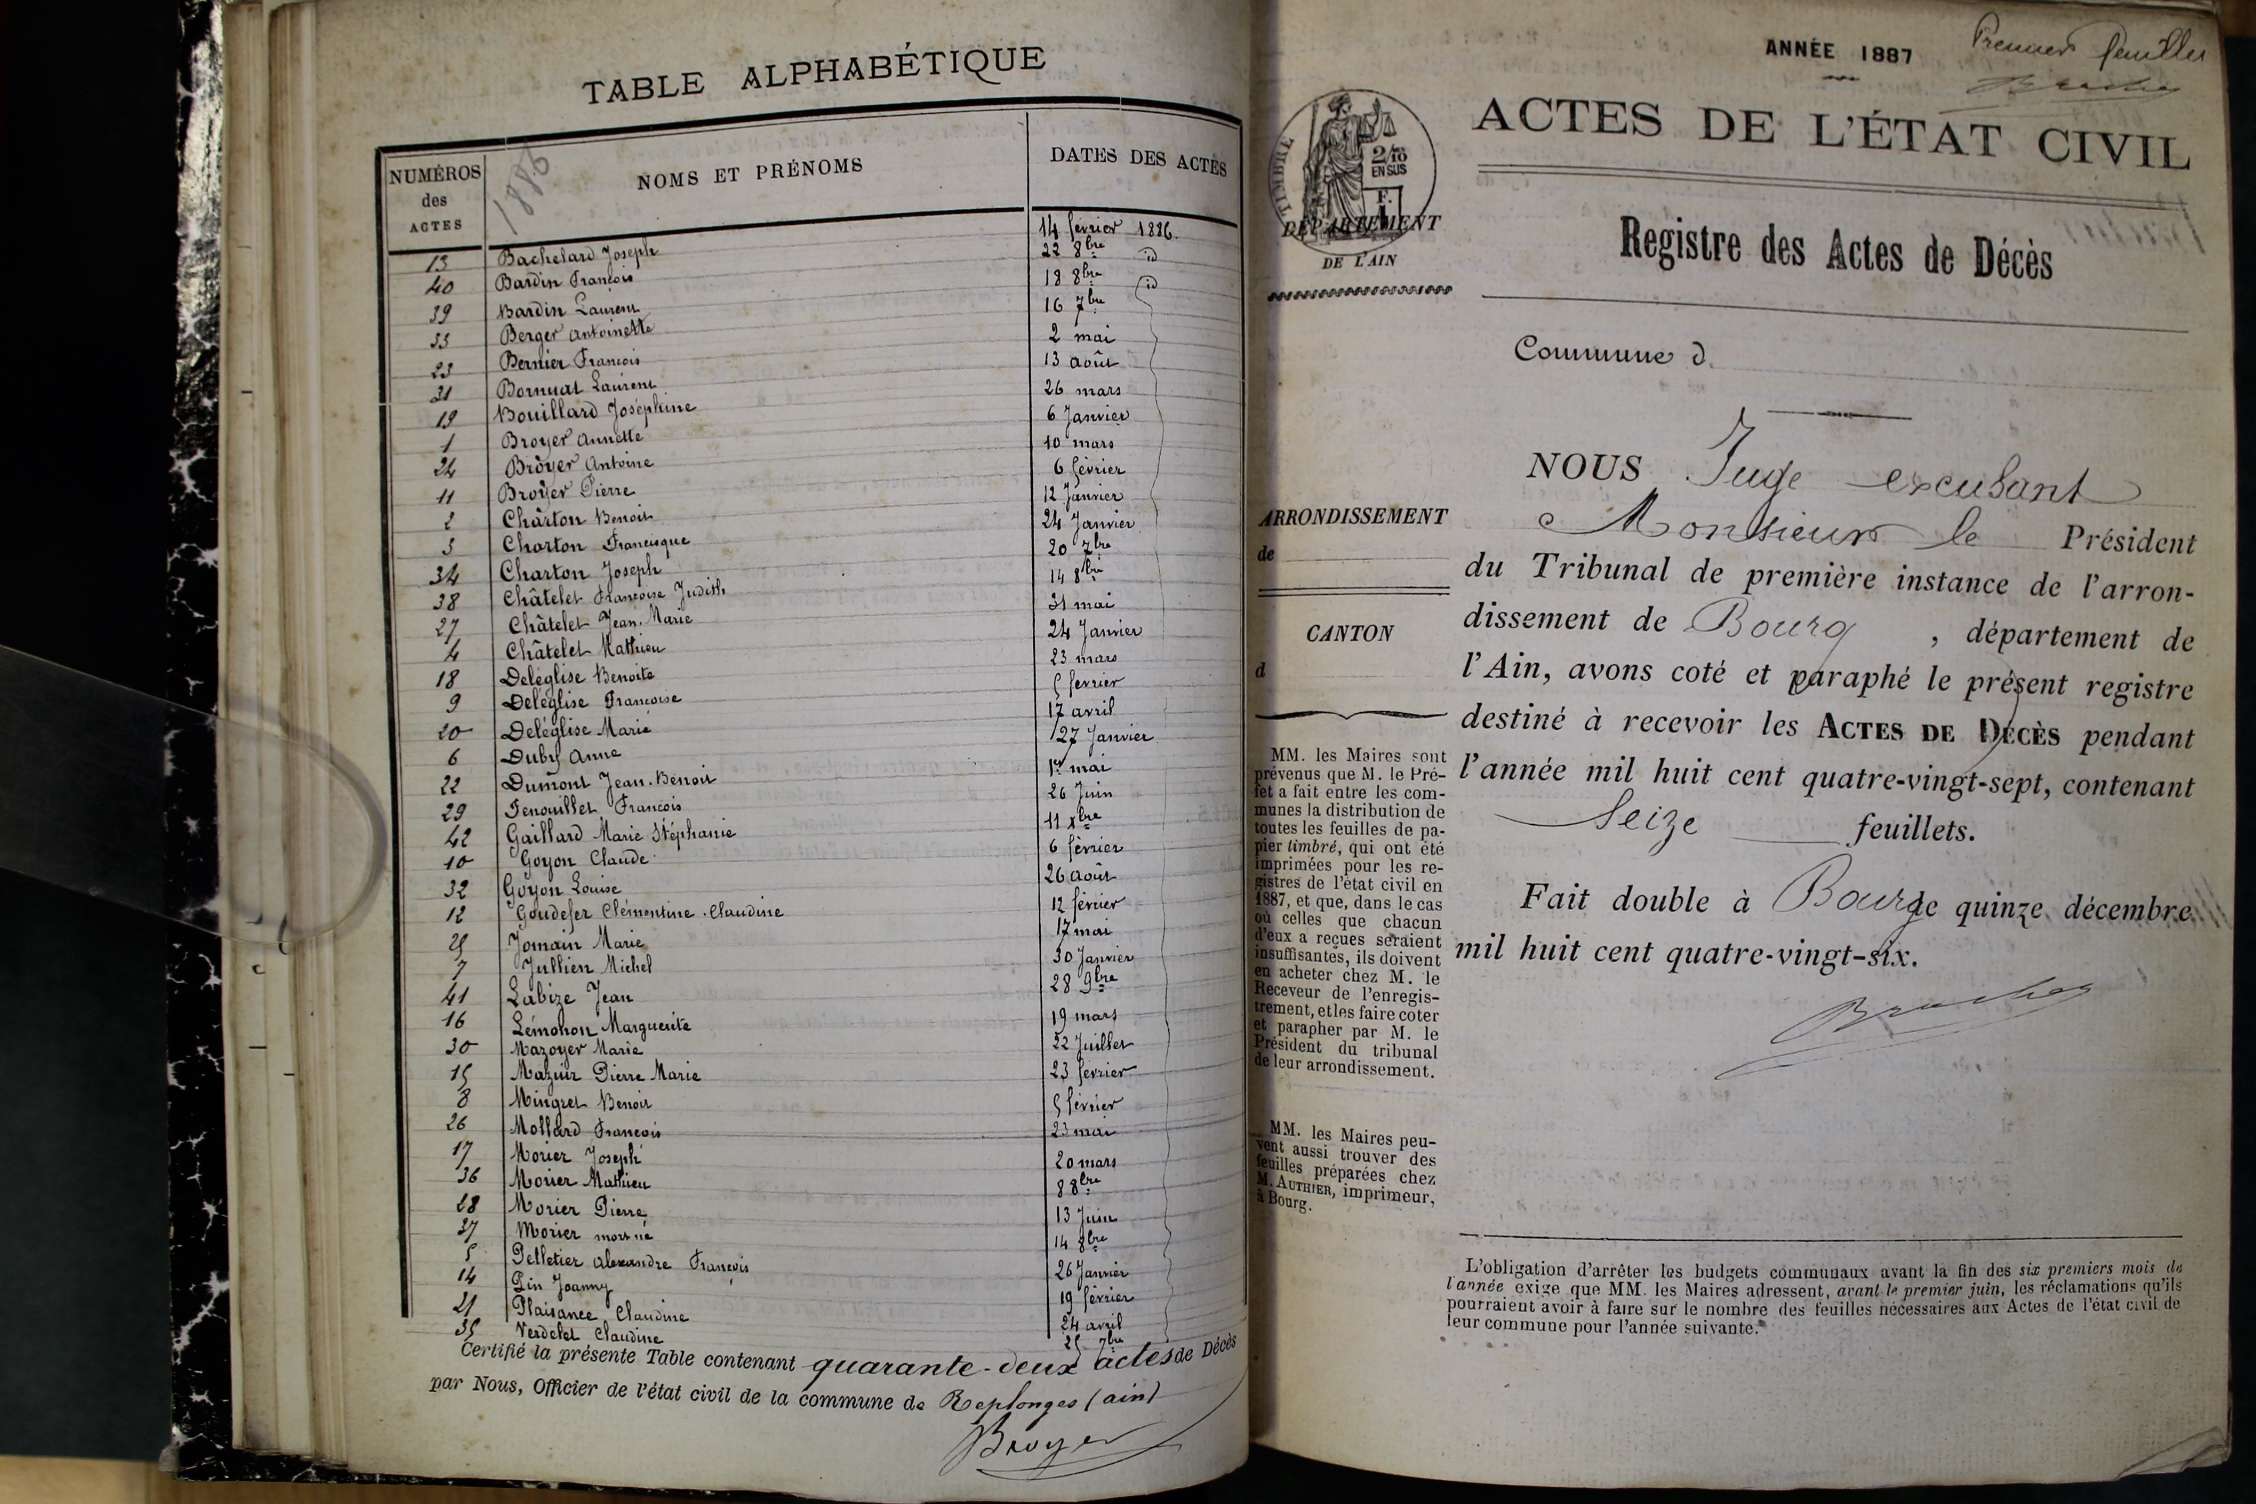 TABLE ALPHABÉTIQUE
NUMÉROS des ACTES
1886
NOMS ET PRÉNOMS
DATES DES ACTES
13 Bachelard Joseph 14 février 1886
40 Bardin François 22 8bre id
39 Bardin Laurent 18 8bre id
33 Berger Antoinette 16 7bre
23 Bernier François 2 mai
31 Bornuat Laurent 13 août
19 Bouillard Joséphine 26 mars
1 Broyer Annette 6 Janvier
24 Broyer Antoine 10 mars
11 Broyer Pierre 6 février
2 Charton Benoit 12 Janvier
3 Charton Francisque 24 Janvier
34 Charton Joseph 20 7bre
38 Châtelet Françoise Judith 14 8bre
27 Châtelet Jean-Marie 31 mai
4 Châtelet Mathieu 24 Janvier
18 Deléglise Benoite 23 mars
9 Deléglise Françoise 5 février
20 Deléglise Marie 17 avril
6 Duby Anne 27 Janvier
22 Dumont Jean-Benoit 1er mai
29 Fenouillet François 26 Juin
42 Gaillard Marie Stéphanie 11 Xbre
10 Goyon Claude 6 février
32 Goyon Louise 26 août
12 Goudefer Clémentine-Claudine 12 février
25 Jomain Marie 17 mai
7 Jullien Michel 30 Janvier
41 Labize Jean 28 9bre
16 Lémonon Marguerite 19 mars
30 Mazoyer Marie 22 Juillet
15 Mazuir Pierre Marie 23 février
8 Mingret Benoit 5 février
26 Mollard François 23 mai
17 Morier Joseph 20 mars
36 Morier Mathieu 8 8bre
28 Morier Pierre 13 Juin
37 Morier mort né 14 8bre
5 Pelletier Alexandre François 26 Janvier
14 Pin Joanny 19 février
21 Plaisance Claudine 24 avril
35 Verdelet Claudine 25 7bre
Certifié la présente Table contenant quarante-deux actes de Décès
par Nous, Officier de l'état civil de la commune de Replonges (ain)
Broyer
ANNÉE 1887
Premier feuillet
ACTES DE L'ÉTAT CIVIL
TIMBRE
2/10 EN SUS
F. 1
DÉPARTEMENT
DE L'AIN
Registre des Actes de Décès
Commune d
NOUS Juge excusant
Monsieur le Président
du Tribunal de première instance de l'arron-
dissement de Bourg, département de
l'Ain, avons coté et paraphé le présent registre
destiné à recevoir les ACTES DE DÉCÈS pendant
l'année mil huit cent quatre-vingt-sept, contenant
Seize feuillets.
Fait double à Bourg le quinze décembre
mil huit cent quatre-vingt-six.
ARRONDISSEMENT
de
CANTON
d
MM. les Maires sont
prévenus que M. le Pré-
fet a fait entre les com-
munes la distribution de
toutes les feuilles de pa-
pier timbré, qui ont été
imprimées pour les re-
gistres de l'état civil en
1887, et que, dans le cas
où celles que chacun
d'eux a reçues seraient
insuffisantes, ils doivent
en acheter chez M. le
Receveur de l'enregis-
trement, et les faire coter
et parapher par M. le
Président du tribunal
de leur arrondissement.
MM. les Maires peu-
vent aussi trouver des
feuilles préparées chez
M. AUTHIER, imprimeur,
à Bourg.
L'obligation d'arrêter les budgets communaux avant la fin des six premiers mois de
l'année exige que MM. les Maires adressent, avant le premier juin, les réclamations qu'ils
pourraient avoir à faire sur le nombre des feuilles nécessaires aux Actes de l'état civil de
leur commune pour l'année suivante.